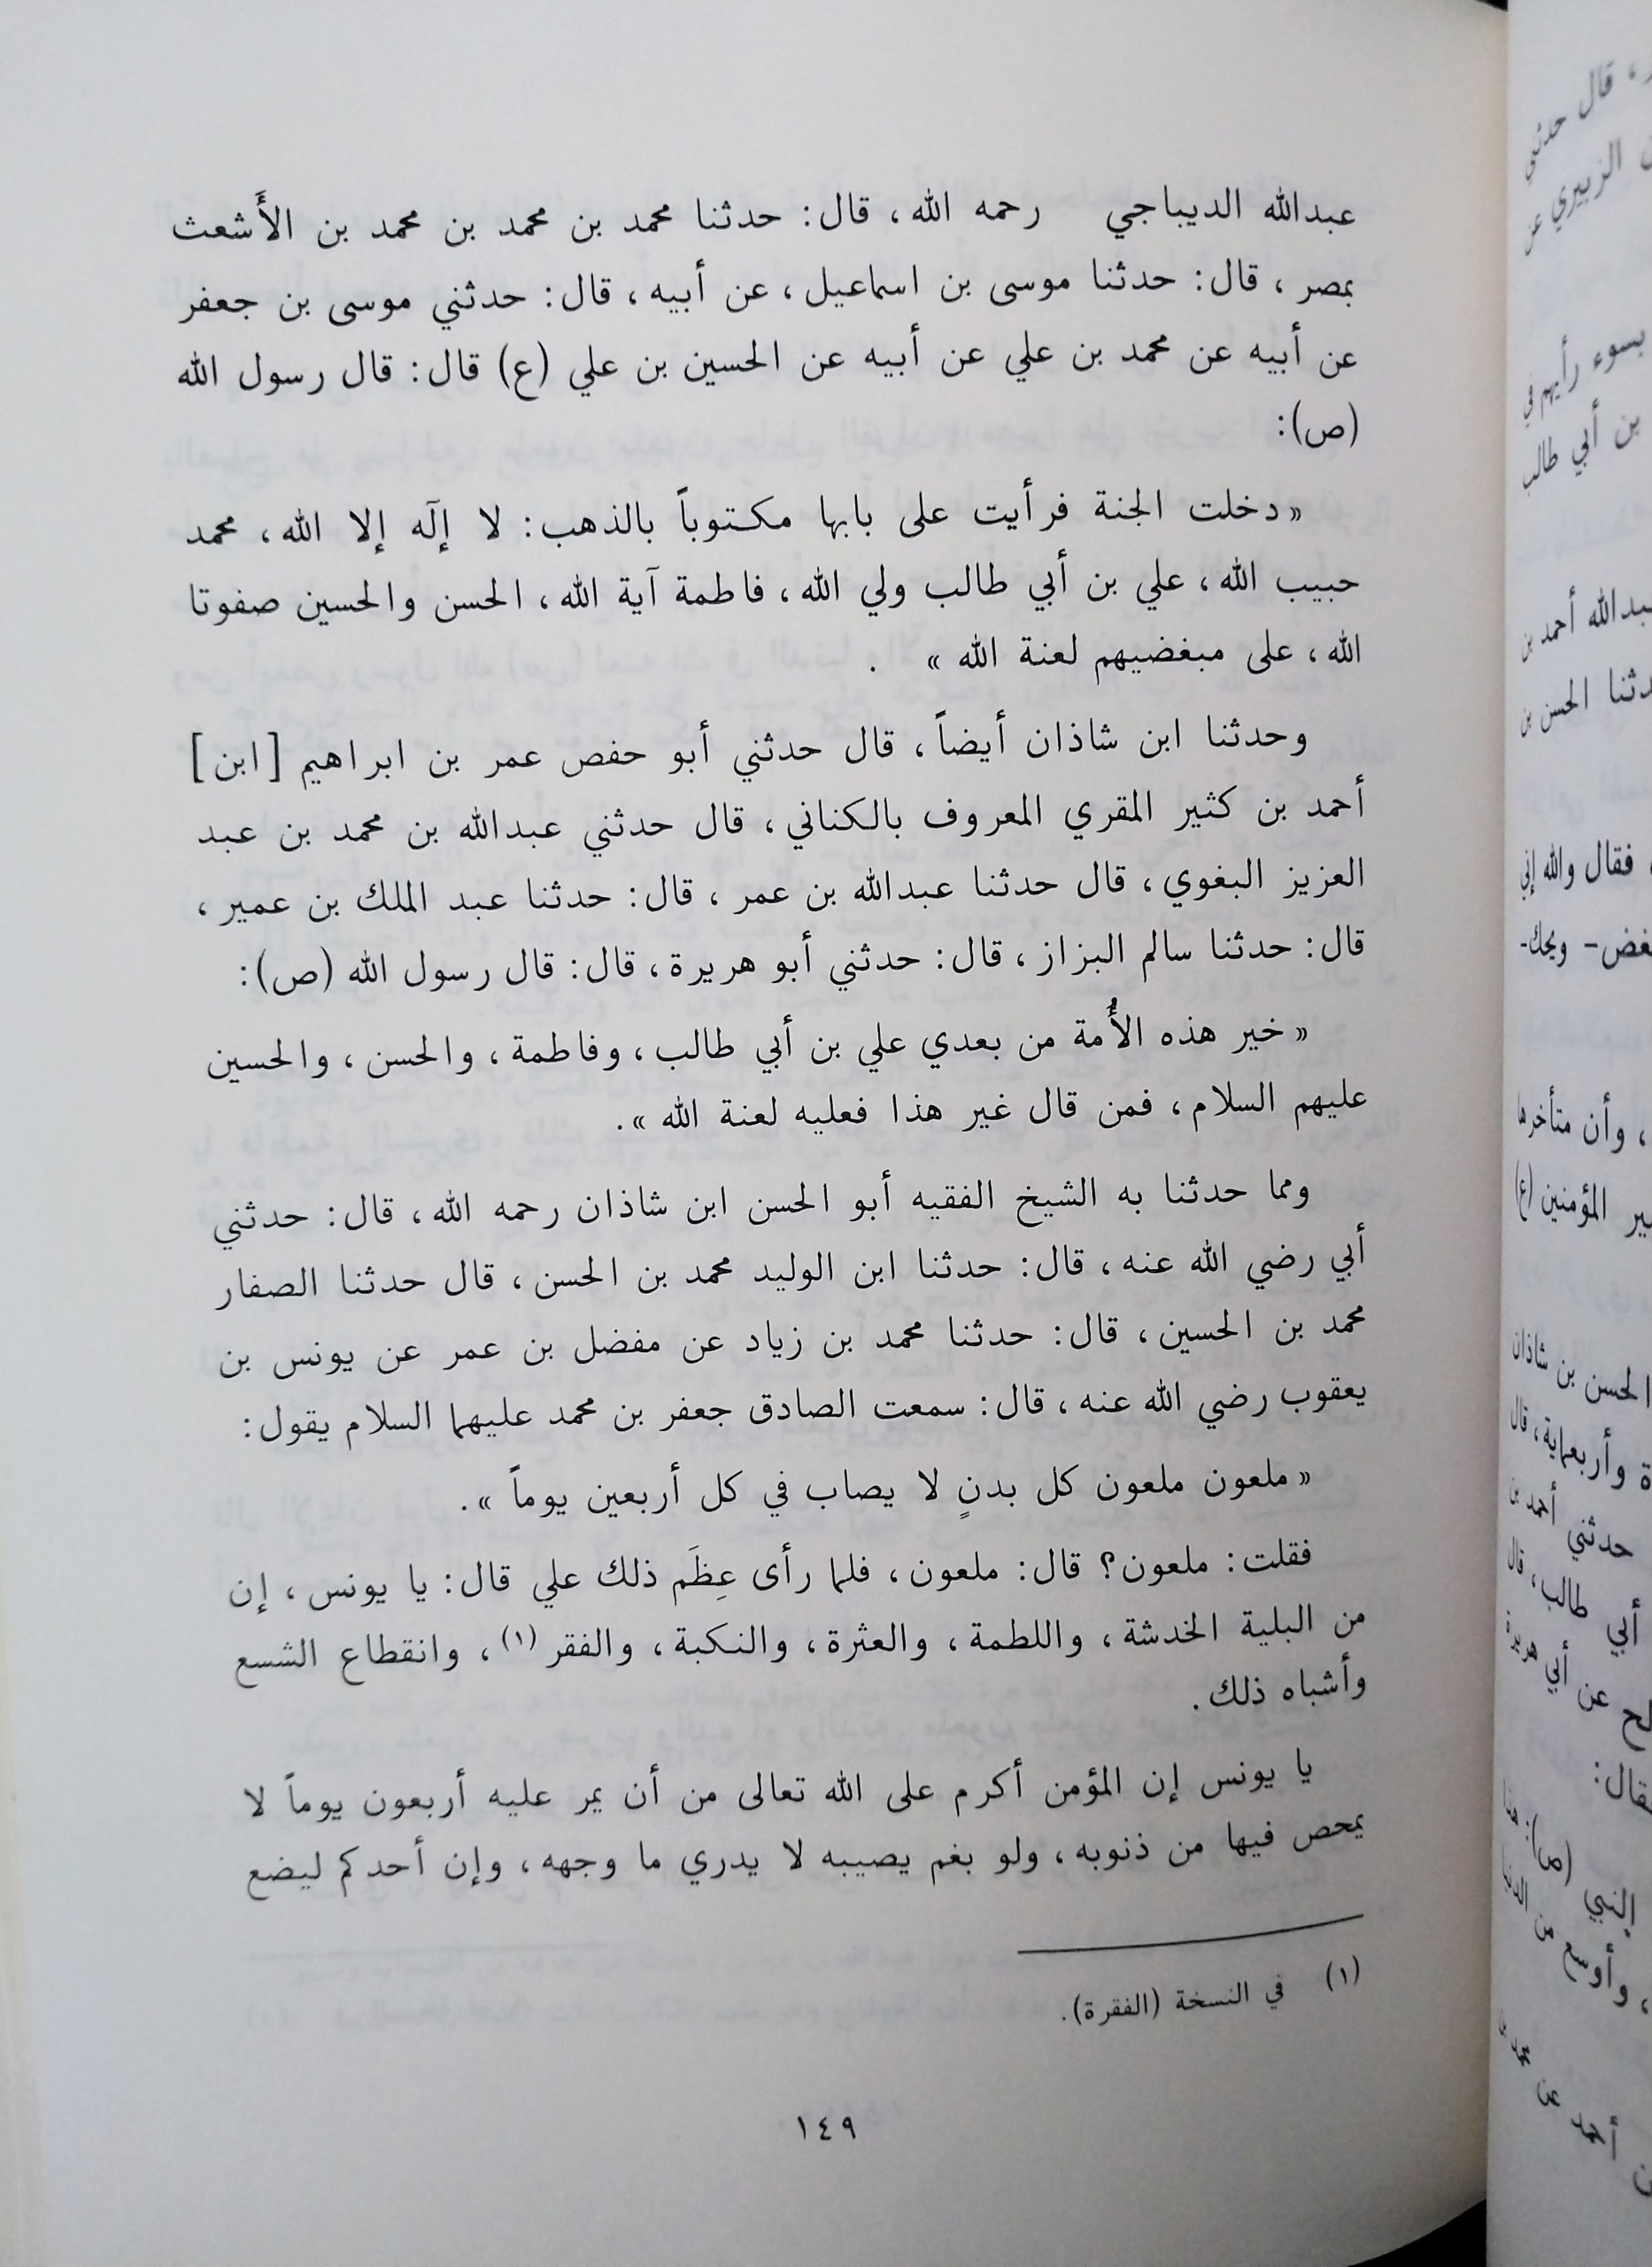 عبدالله الديباجي رحمه الله، قال: حدثنا محمد بن محمد بن محمد بن الأَشعث
بمصر، قال: حدثنا موسى بن اسماعيل، عن أبيه، قال: حدثني موسى بن جعفر
عن أبيه عن محمد بن علي عن أبيه عن الحسين بن علي (ع) قال: قال رسول الله
(ص):
«دخلت الجنة فرأيت على بابها مكتوباً بالذهب: لا إلَه إلا الله، محمد
حبيب الله، علي بن أبي طالب ولي الله، فاطمة آية الله، الحسن والحسين صفوتا
الله، على مبغضيهم لعنة الله» .
وحدثنا ابن شاذان أيضاً، قال حدثني أبو حفص عمر بن ابراهيم [ابن]
أحمد بن كثير المقري المعروف بالكناني، قال حدثني عبدالله بن محمد بن عبد
العزيز البغوي، قال حدثنا عبدالله بن عمر، قال: حدثنا عبد الملك بن عمير،
قال: حدثنا سالم البزاز، قال: حدثني أبو هريرة، قال: قال رسول الله (ص):
«خير هذه الأُمة من بعدي علي بن أبي طالب، وفاطمة، والحسن، والحسين
عليهم السلام، فمن قال غير هذا فعليه لعنة الله».
ومما حدثنا به الشيخ الفقيه أبو الحسن ابن شاذان رحمه الله، قال: حدثني
أبي رضي الله عنه، قال: حدثنا ابن الوليد محمد بن الحسن، قال حدثنا الصفار
محمد بن الحسين، قال: حدثنا محمد بن زياد عن مفضل بن عمر عن يونس بن
يعقوب رضي الله عنه، قال: سمعت الصادق جعفر بن محمد عليهما السلام يقول:
«ملعون ملعون كل بدنٍ لا يصاب في كل أربعين يوماً».
فقلت: ملعون؟ قال: ملعون، فلما رأى عِظَم ذلك علي قال: يا يونس، إن
من البلية الخدشة، واللطمة، والعثرة، والنكبة، والفقر (١)، وانقطاع الشسع
وأشباه ذلك.
يا يونس إن المؤمن أكرم على الله تعالى من أن يمر عليه أربعون يوماً لا
يمحص فيها من ذنوبه، ولو بغم يصيبه لا يدري ما وجهه، وإن أحدكم ليضع
(١) في النسخة (الفقرة).
١٤٩